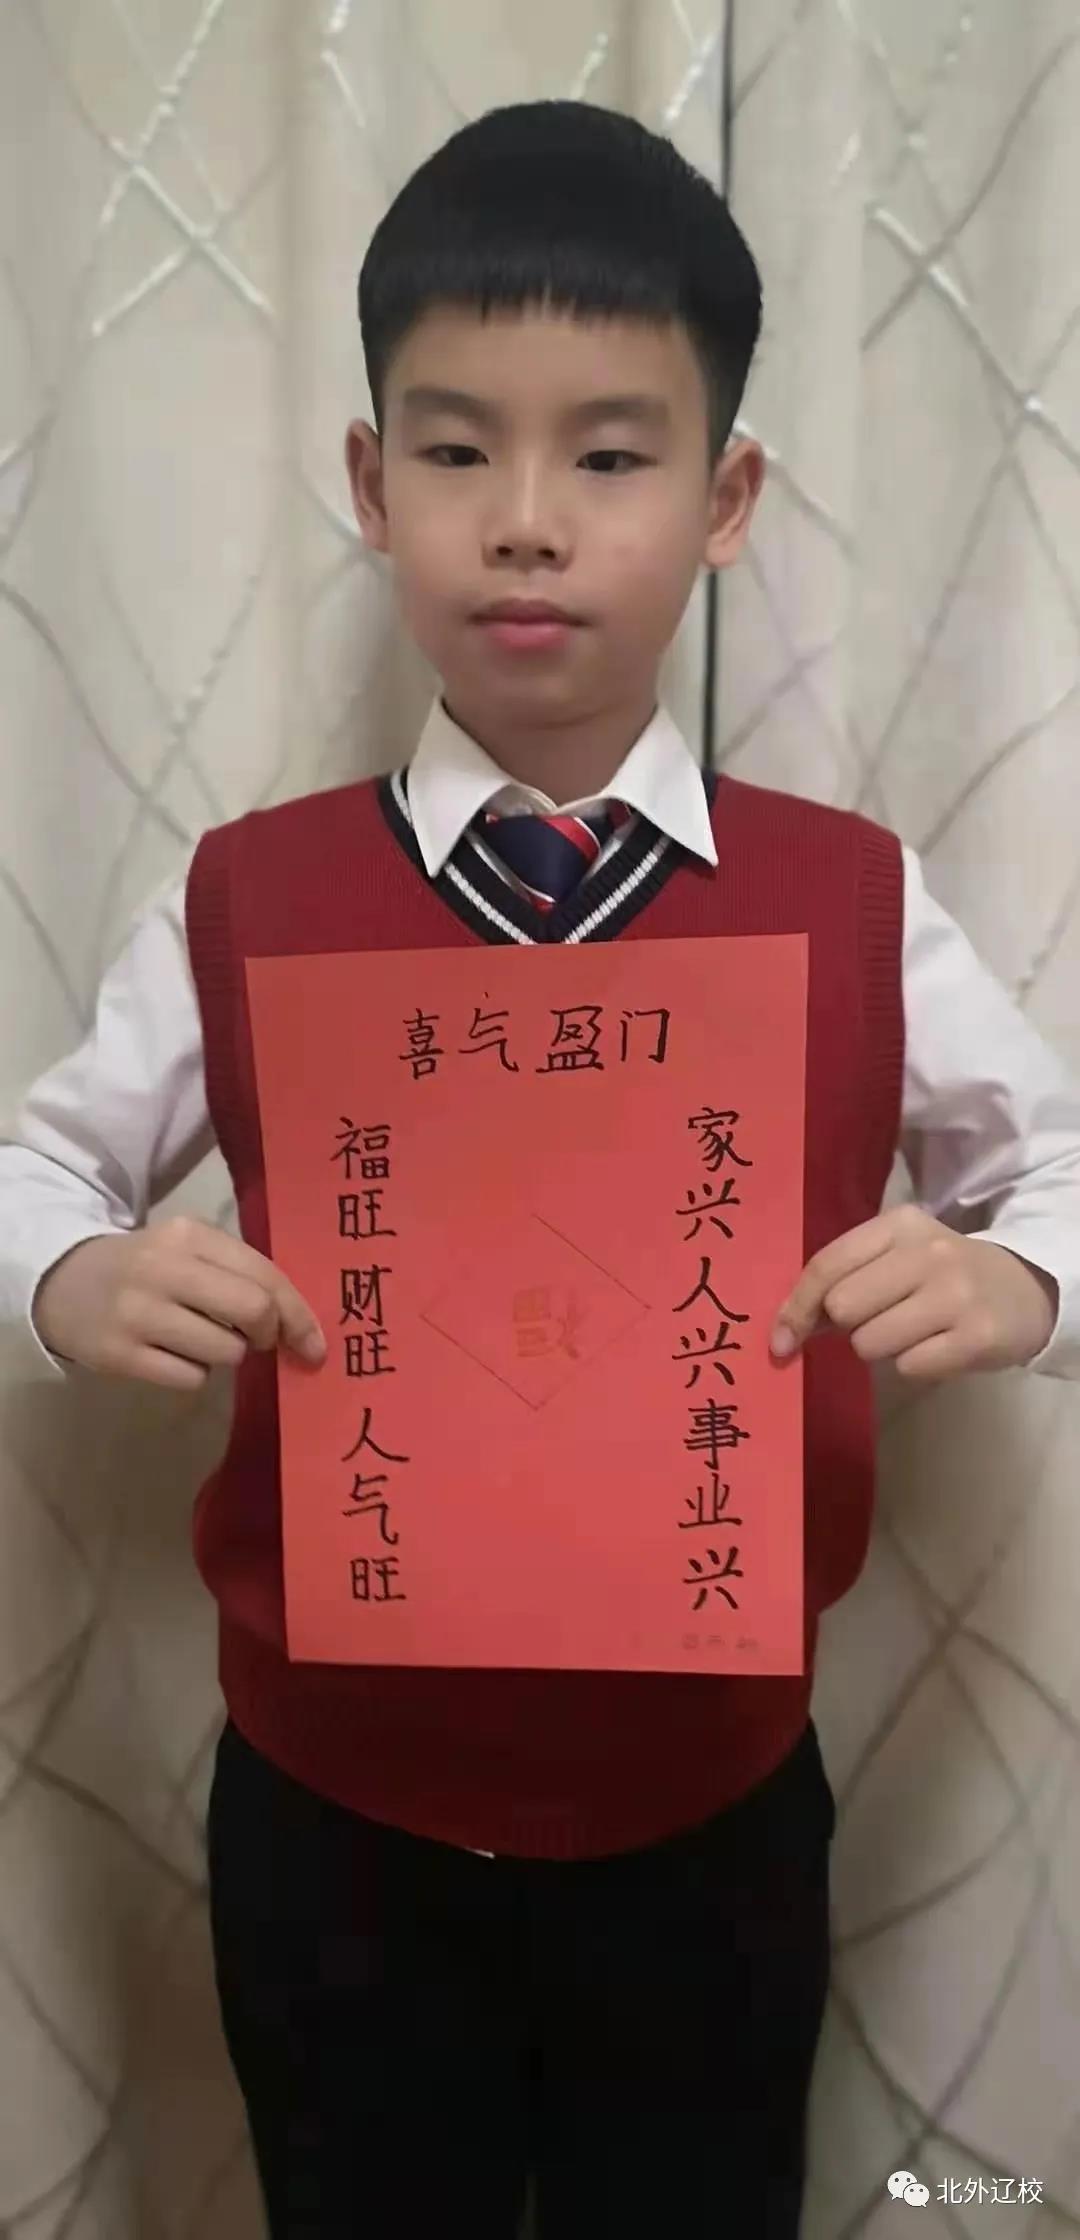 喜气盈门
家兴人兴事业兴
福旺财旺人气旺
福
北外辽校